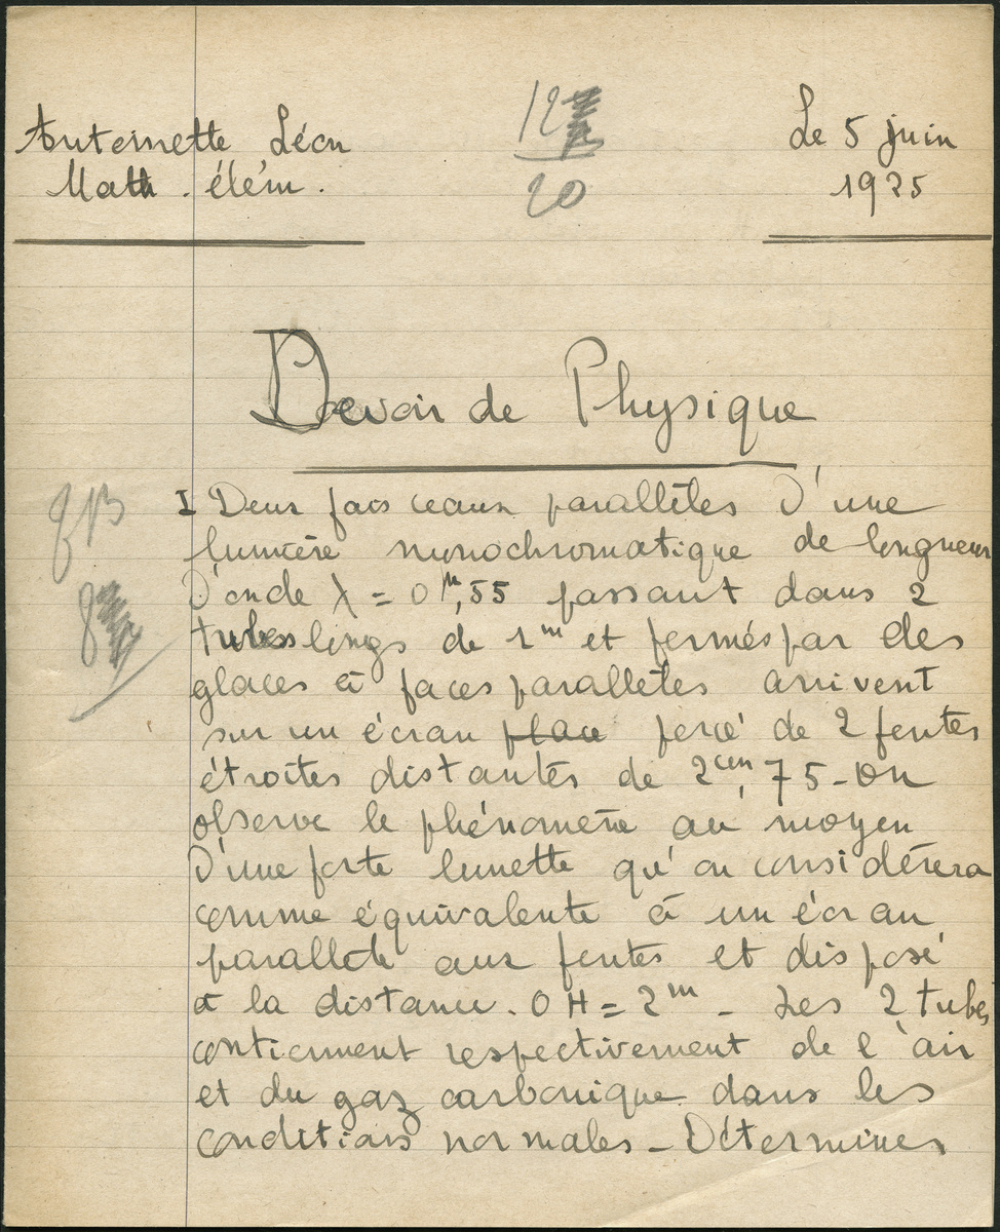 Antoinette Léon
Math. élém.
12
20
Le 5 juin
1925
Devoir de Physique
I Deux faisceaux parallèles d'une
lumière monochromatique de longueur
d'onde λ = 0μ,55 passant dans 2
tubes longs de 1m et fermés par des
glaces à faces parallèles arrivent
sur un écran place percé de 2 fentes
étroites distantes de 2cm,75 - On
observe le phénomène au moyen
d'une forte lunette qu'on considèrera
comme équivalente à un écran
parallèle aux fentes et disposé
à la distance. OH = 2m - Les 2 tubes
contiennent respectivement de l'air
et du gaz carbonique dans les
conditions normales - Déterminer
8